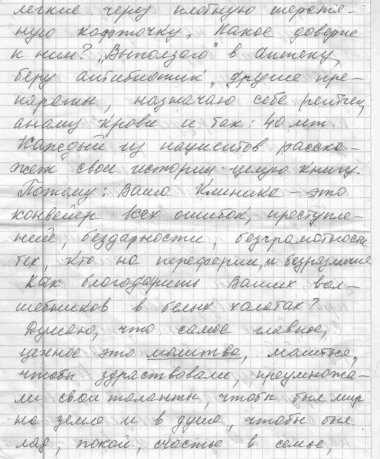 легкие через плотную шерстя-
ную кофточку. Какое доверие
к ним? „Выползаю" в аптеку,
беру антибиотик, другие пре-
параты, назначаю себе рентген,
анализ крови и так: 40 лет.
Каждый из пациентов расска-
жет свои истории – целую книгу.
Потому: Ваша Клиника – это
конвейер всех ошибок, преступле-
ний, бездарности, безграмотности
тех, кто на периферии, и безразличие
Как благодарить Ваших вол-
шебников в белых халатах?
Думаю, что самое главное,
ценное это молитва, молиться,
чтобы здравствовали, преумножа-
ли свои таланты, чтобы был мир
на земле и в душе, чтобы был
лад, покой, счастье в семье,